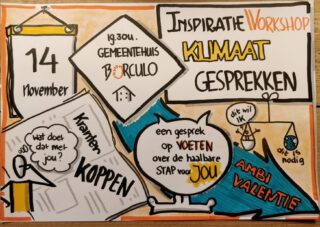 14
November
19.30u.
GEMEENTEHUIS
BORCULO
INSPIRATIE WORKSHOP
KLIMAAT
GESPREKKEN
wat doet
dat met
jou?
Kranten
KOPPEN
een gesprek
op VOETEN
over de haalbare
STAP voor JOU
dit wil
IK
dit is
nodig
AMBI
VALENTIE